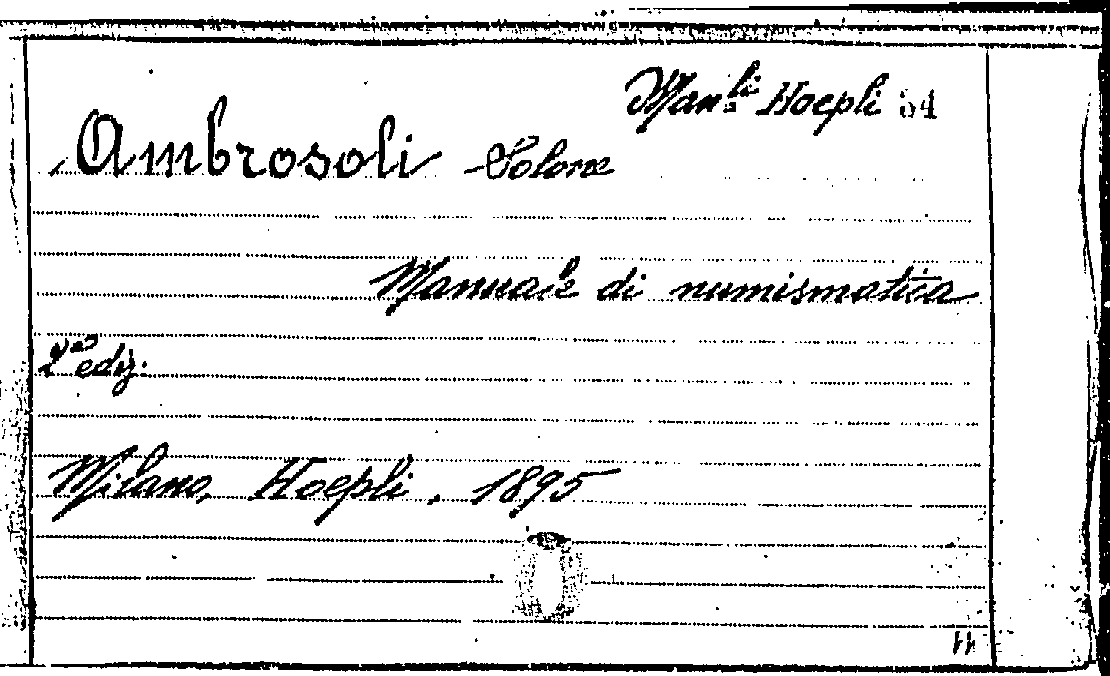 Man.li Hoepli 54
Ambrosoli Solone
Manuale di numismatica
2a ediz.
Milano, Hoepli, 1895